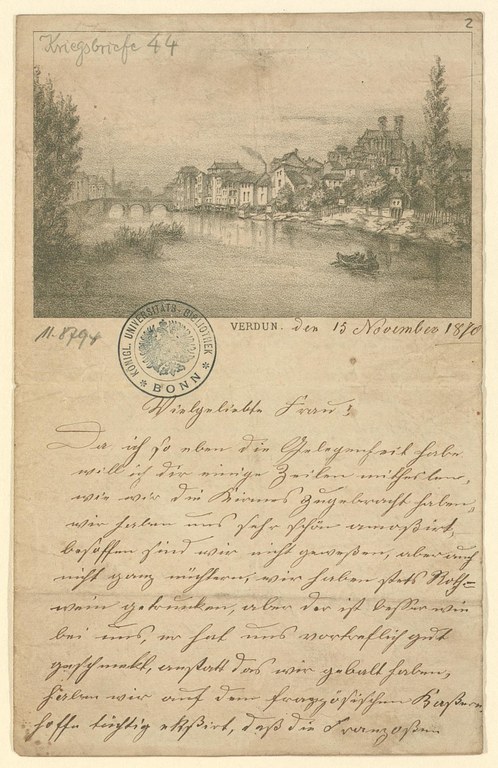 2
Kriegsbriefe 44
VERDUN. den 15 November 1870
KÖNIGL. UNIVERSITÄTS-BIBLIOTHEK
BONN
Vielgeliebte Frau!
Da ich so eben die Gelegenheit habe
will ich dir einige Zeilen mitheilen,
wie wir die Kirmes zugebracht haben,
wir haben uns sehr schön amoßirt,
besoffen sind wir nicht geweßen, aber auch
nicht ganz nüchtern, wir haben stets Roth=
wein getrunken, aber der ist besser wie
bei uns, er hat uns vortreflich gut
geschmekt, anstatt das wir gebalt haben,
haben wir auf dem französischen Kaßern
hoffe tüchtig ekßirt, daß die Franzoßen